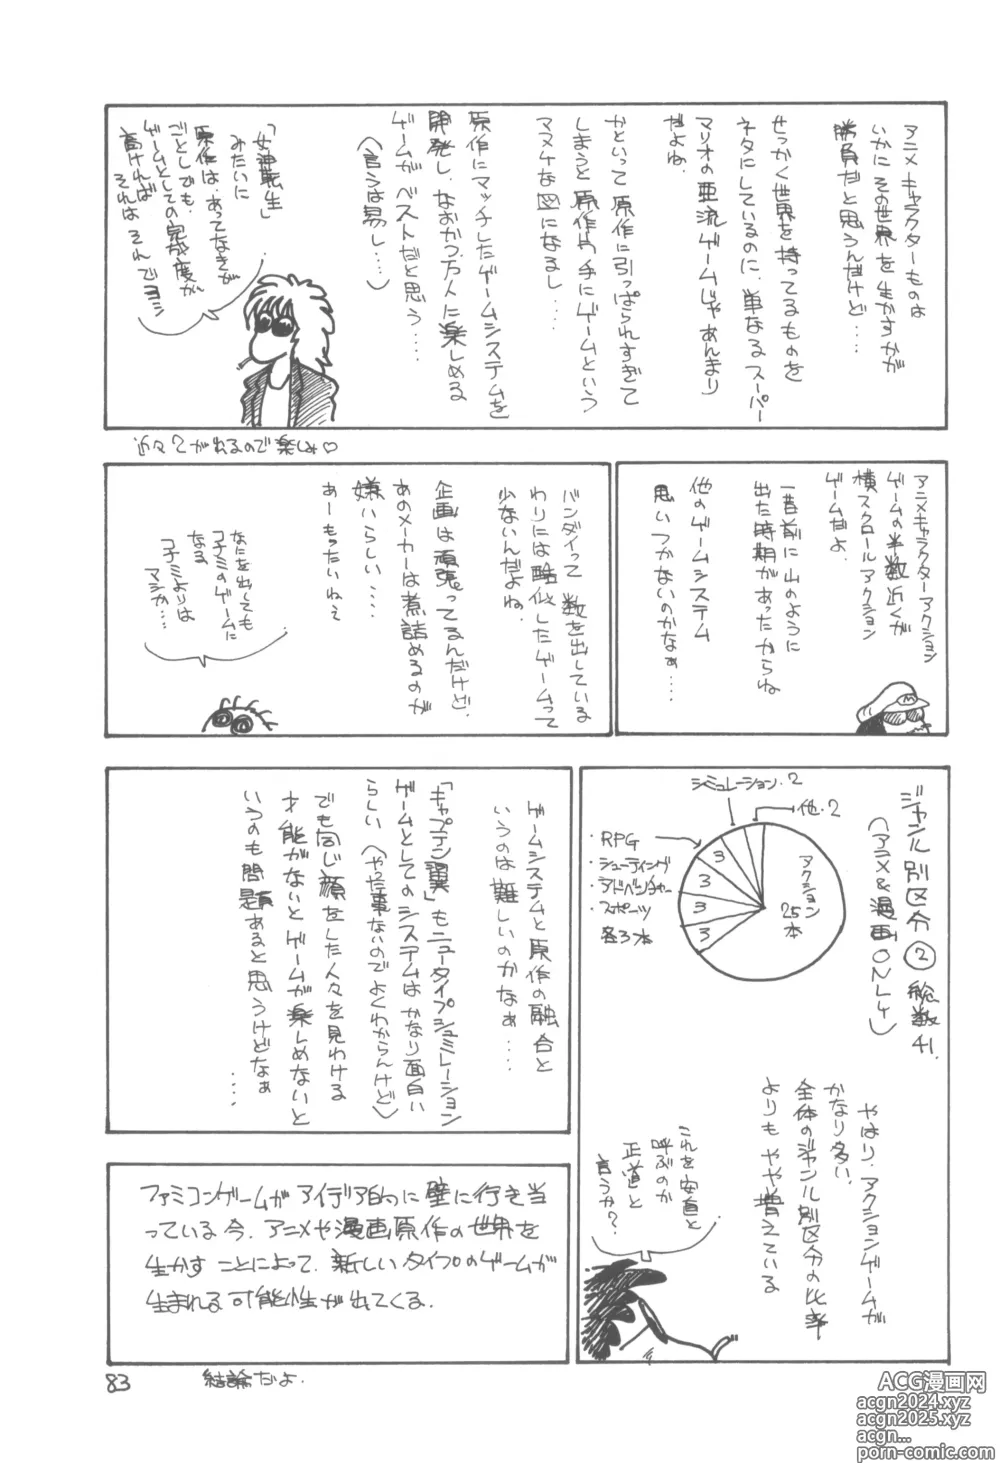 アニメキャラクターものは
いかにその世界を生かすかが
勝負だと思うんだけど‥‥
せっかく世界を持ってるものを
ネタにしているのに、単なるスーパー
マリオの亜流ゲームじゃあんまり
だよね。
かといって原作に引っぱられすぎて
しまうと原作の手にゲームという
マヌケな図になるし‥‥
原作にマッチしたゲームシステムを
開発し、なおかつ万人に楽しめる
ゲームがベストだと思う‥‥
(言うは易し‥‥)
「女神転生」
みたいに
原作は、あってなきが
ごとしでも、
ゲームとしての完成度が
高ければ
それはそれでヨシ
近々2が出るので楽しみ♡
アニメキャラクターアクション
ゲームの半数近くが
横スクロールアクション
ゲームだよ。
一昔前に山のように
出た時期があったからね
他のゲームシステム
思いつかないのかなぁ‥‥
M
バンダイって数を出している
わりには酷似したゲームって
少ないんだよね。
企画は頑張ってるんだけど、
あのメーカーは煮詰めるのが
嫌いらしい‥‥
あーもったいねぇ
なにを出しても
コナミのゲームに
なる
コナミよりは
マシか‥‥
ジャンル別区分② 総数41.
(アニメ&漫画ONLY)
シミュレーション・2
他・2
・RPG
・シューティング
・アドベンチャー
・スポーツ
各3本
3
3
3
3
アクション
25本
やはり、アクションゲームが
かなり多い、
全体のジャンル別区分の比率
よりもやや増えている
これを安直と
呼ぶのか
正道と
言うか?
ゲームシステムと原作の融合と
いうのは難しいのかなぁ‥‥
「キャプテン翼」もニュータイプシュミレーション
ゲームとしてのシステムはかなり面白い
らしい(やった事ないのでよくわからんけど)
でも同じ顔をした人々を見わける
才能がないとゲームが楽しめないと
いうのも問題あると思うけどなぁ
‥‥
ファミコンゲームがアイデア的に壁に行き当
っている今、アニメや漫画原作の世界を
生かすことによって、新しいタイプのゲームが
生まれる可能性が出てくる.
結論だよ.
83
ACG漫画网
acgn2024.xyz
acgn2025.xyz
acgn...
porn-comic.com